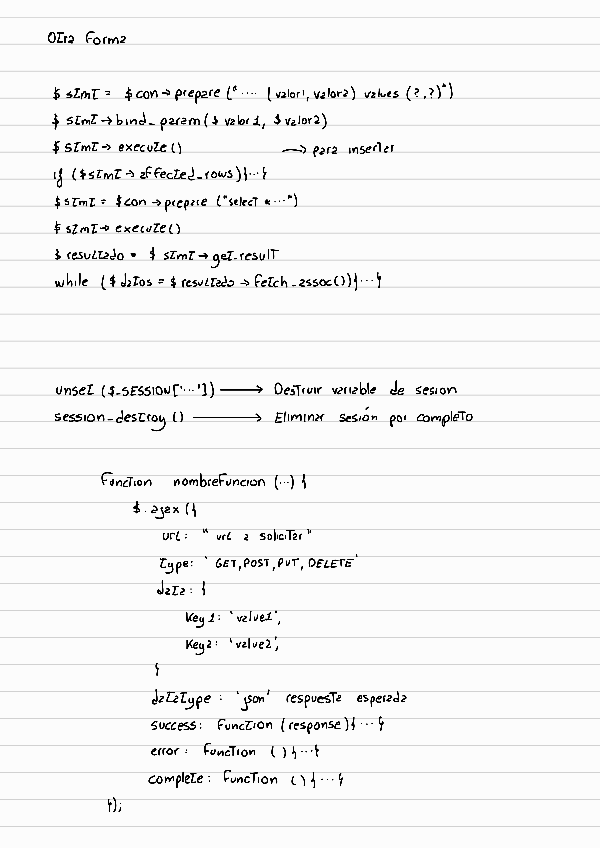 Otra Forma
$ stmt = $ con → prepare ("···· (valor1, valor2) values (?,?)")
$ stmt → bind_param($ valor1, $ valor2)
$ stmt → execute() → para insertar
if ($stmt → affected_rows){···}
$ stmt = $con → prepare ("select *···")
$ stmt → execute()
$ resultado = $ stmt → get_result
while ($ datos = $ resultado → fetch_assoc()){···}
unset ($_SESSION['···']) → Destruir variable de sesion
session_destroy () → Eliminar sesión por completo
Function nombreFuncion (···) {
$. ajax ({
url: " url a solicitar"
type: 'GET, POST, PUT, DELETE'
data: {
Key1: 'value1',
Key2: 'value2',
}
dataType: 'json' respuesta esperada
success: Function (response){···}
error: Function () {···}
complete: Function () {···}
});